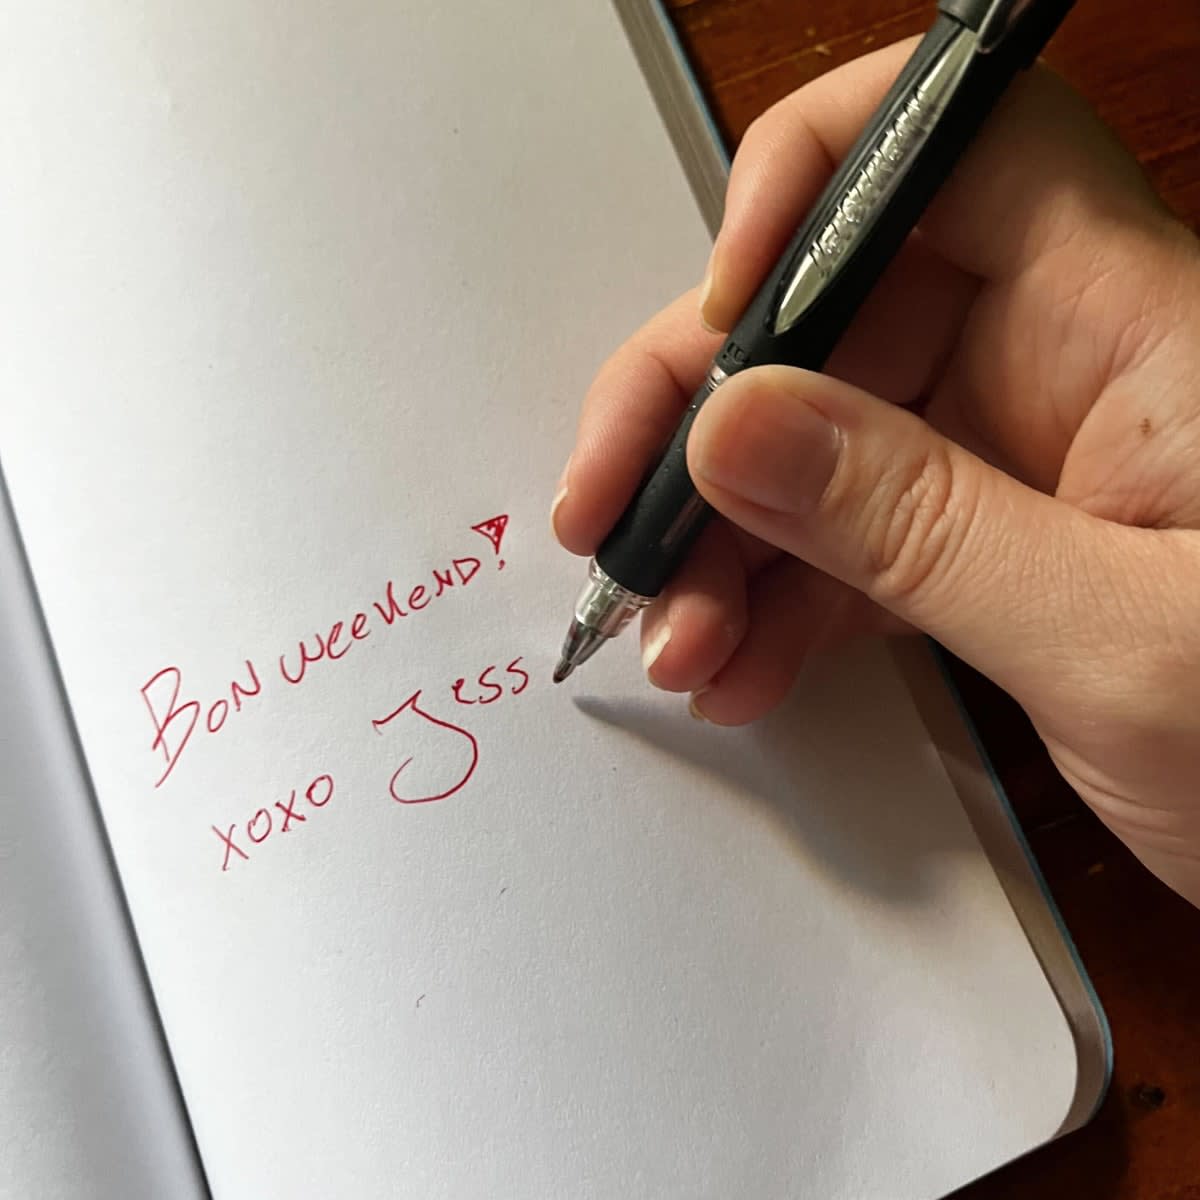 Bon weekend!
xoxo Jess